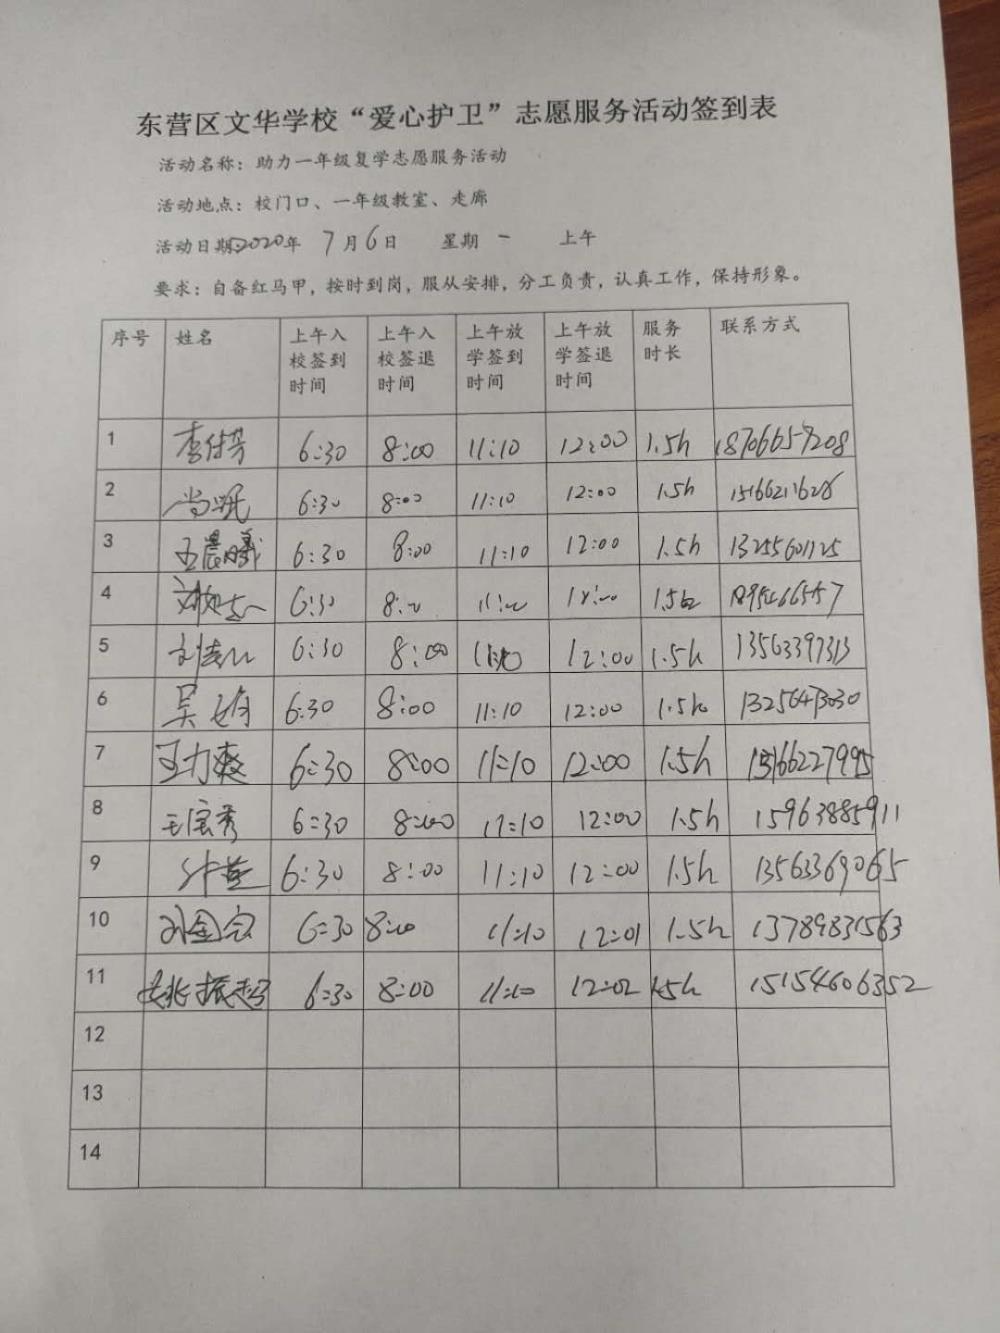 东营区文华学校“爱心护卫”志愿服务活动签到表
活动名称：助力一年级复学志愿服务活动
活动地点：校门口、一年级教室、走廊
活动日期2020年 7月6日 星期一 上午
要求：自备红马甲，按时到岗，服从安排，分工负责，认真工作，保持形象。
序号 姓名 上午入校签到时间 上午入校签退时间 上午放学签到时间 上午放学签退时间 服务时长 联系方式
1 6:30 8:00 11:10 12:00 1.5h 18706659208
2 6:30 8:00 11:10 12:00 1.5h
3 王晨曦 6:30 8:00 11:10 12:00 1.5h 13255601125
4 6:30
5 6:30 8:00 12:00 1.5h 13563397313
6 6:30 8:00 11:10 12:00 1.5h
7 王力爽 6:30 8:00 11:10 12:00 1.5h 15166227995
8 王宝秀 6:30 8:00 11:10 12:00 1.5h 15963885911
9 6:30 8:00 11:10 12:00 1.5h 13563369065
10 6:30 8:00 11:10 12:01 1.5h 13789831563
11 姚振超 6:30 8:00 11:10 12:02 1.5h 15154606352
12
13
14